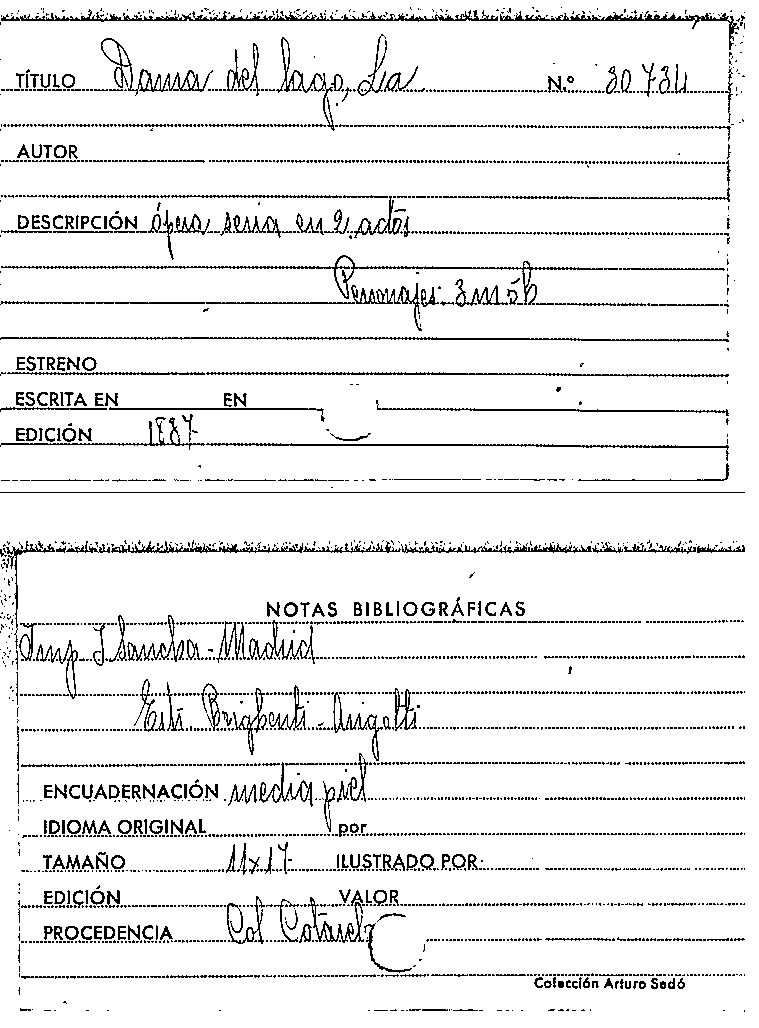 TÍTULO Dama del lago, La N.º 30734
AUTOR
DESCRIPCIÓN ópera seria en 2 actos
Personajes: 3m 5h
ESTRENO
ESCRITA EN EN
EDICIÓN 1837
NOTAS BIBLIOGRÁFICAS
Imp J Sancha - Madrid
Brighenti -
ENCUADERNACIÓN media piel
IDIOMA ORIGINAL por
TAMAÑO 11x17 ILUSTRADO POR:
EDICIÓN VALOR
PROCEDENCIA Col Cotarelo
Colección Arturo Sedó